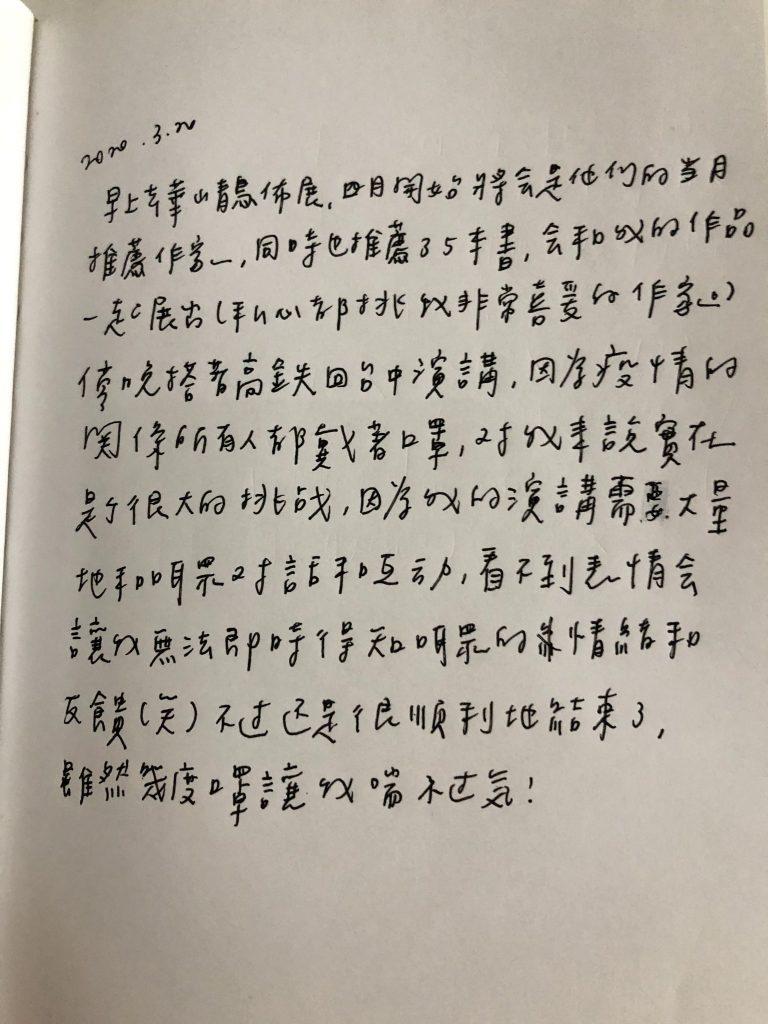 2020.3.20
早上去華山青鳥佈展,四月開始將会是他们的当月
推薦作家,同時也推薦35本書,会和我的作品
一起展出(私心都挑我非常喜爱的作家)
傍晚搭著高鉄回台中演講,因為疫情的
関係所有人都戴著口罩,对我來說實在
是个很大的挑战,因為我的演講需要大量
地和听眾对話和互动,看不到表情会
讓我無法即時得知听眾的情緒和
反饋(笑)不过还是很順利地結束了,
雖然幾度口罩讓我喘不过気!